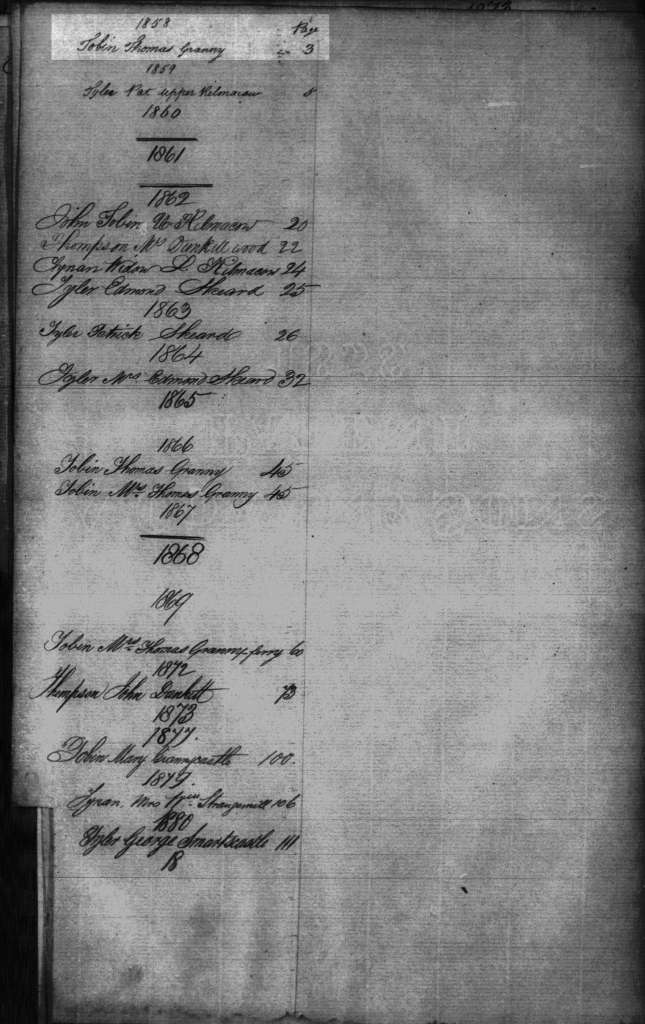 1858
Page
Tobin Thomas Granny 3
1859
Tyler Pat upper Kilmacow 8
1860
1861
1862
John Tobin U Kilmacow 20
Thompson Mrs Dunkitt wood 22
Tynan Widow L Kilmacow 24
Tyler Edmond Skeard 25
1863
Tyler Patrick Skeard 26
1864
Tyler Mrs Edmond Skeard 32
1865
1866
Tobin Thomas Granny 45
Tobin Mrs Thomas Granny 45
1867
1868
1869
Tobin Mrs Thomas Granny ferry 60
1872
Thompson John Dunkitt 73
1873
1877.
Tobin Mary Grannycastle 100.
1879.
Tynan Mrs Wm Strangsmill 106
1880
Tyler George Smartscastle 111
18